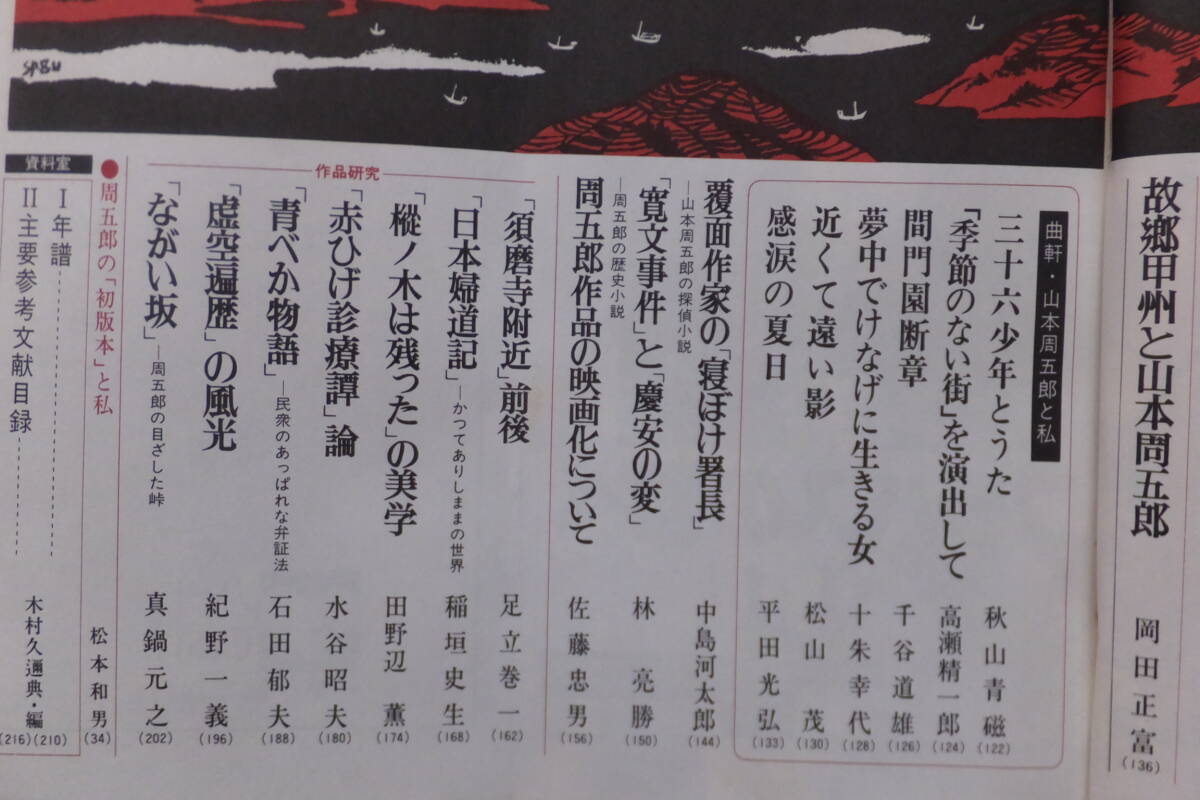 spgu
故郷甲州と山本周五郎 岡田正富 (136)
曲軒・山本周五郎と私
三十六少年とうた 秋山青磁 (122)
「季節のない街」を演出して 高瀬精一郎 (124)
間門園断章 千谷道雄 (126)
夢中でけなげに生きる女 十朱幸代 (128)
近くて遠い影 松山茂 (130)
感涙の夏日 平田光弘 (133)
覆面作家の「寝ぼけ署長」 中島河太郎 (144)
―山本周五郎の探偵小説
「寛文事件」と「慶安の変」 林亮勝 (150)
―周五郎の歴史小説
周五郎作品の映画化について 佐藤忠男 (156)
作品研究
「須磨寺附近」前後 足立巻一 (162)
「日本婦道記」―かつてありしままの世界 稲垣史生 (168)
「樅ノ木は残った」の美学 田野辺薫 (174)
「赤ひげ診療譚」論 水谷昭夫 (180)
「青べか物語」―民衆のあっぱれな弁証法 石田郁夫 (188)
「虚空遍歴」の風光 紀野一義 (196)
「ながい坂」―周五郎の目ざした峠 真鍋元之 (202)
●周五郎の「初版本」と私 松本和男 (34)
資料室
Ⅰ年譜
Ⅱ主要参考文献目録
木村久邇典・編 (216)(210)